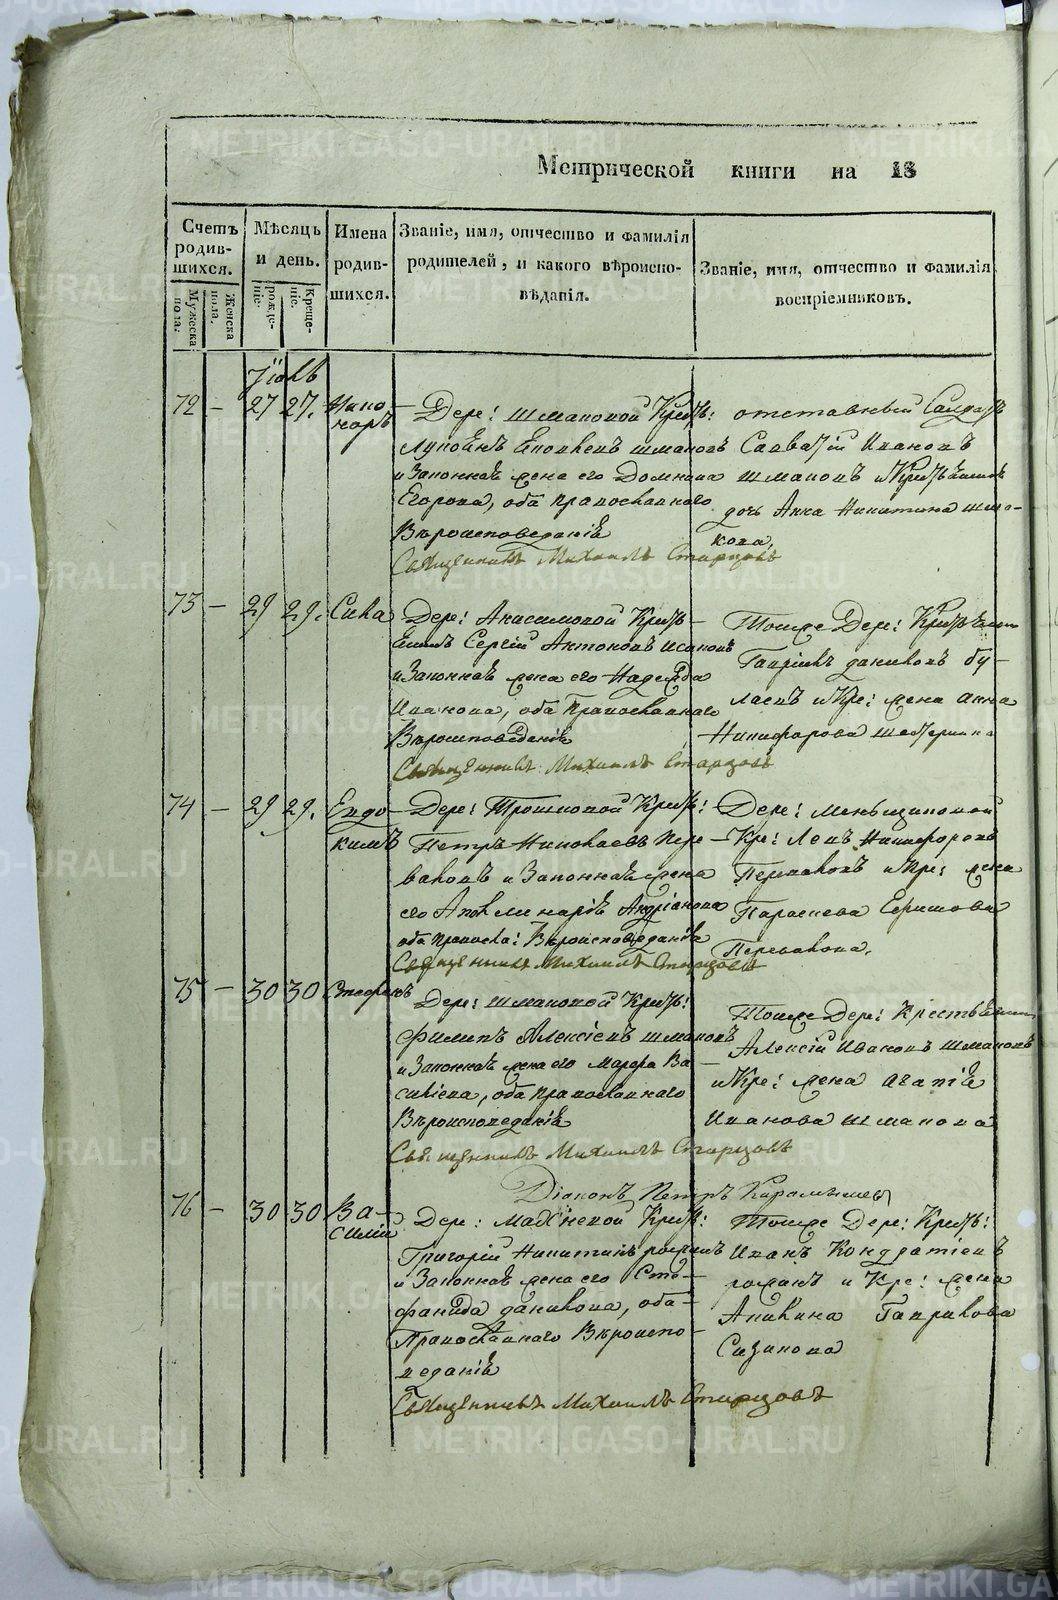 Метрической книги на 18
Счетъ родив-шихся.
Мужеска пола.
Женска пола.
Мѣсяцъ и день.
рожде-ніе.
Креще-ніе.
Имена родив-шихся.
Званіе, имя, отчество и фамилія
родителей, и какого вѣроиспо-
вѣданія.
Званіе, имя, отчество и фамилія
воспріемниковъ.
72 – 27 27.
Дере: Шмаковой Крест:
Шмаковъ
и Законная жена его Домника
Егорова, оба православнаго
Вѣроисповеданія
Священникъ Михаилъ Старцовъ
отставный Салдатъ
Савватій Ивановъ
Шмаковъ и Крестьянская
дочь Анна Никитина Шма-
кова,
73 – 29 29. Сила
Дере:
Сергій Антоновъ Исаковъ
и Законная жена его Надежда
Иванова, оба Православнаго
Вѣроисповеданія
Священникъ Михаилъ Старцовъ
Тоже Дере:
Гаврилъ Даниловъ Бу-
и Кре: жена Анна
Никифорова
74 – 29 29. Евдо-
кимъ
Дере: Трошковой Крест:
Петръ Николаевъ Пере-
валовъ и Законная жена
его Аполинарія Андріанова
оба правосла: Вѣроисповеданія
Священникъ Михаилъ Старцовъ
Дере: Меньщиковой
Кре: Левъ Никифоровъ
Переваловъ и Кре: жена
Параскева Ефимова
Перевалова.
75 – 30 30 Стефанъ
Дере: Шмаковой Крест:
Филипъ Алексіевъ Шмаковъ
и Законная жена его Марфа Ва-
силіева, оба Православнаго
Вѣроисповеданія
Священникъ Михаилъ Старцовъ
Тоже Дере:
Алексій Ивановъ Шмаковъ
и Кре: жена Агапія
Иванова Шмакова
Діаконъ Петръ
76 – 30 30 Ва-
силій
Дере: Крест:
Григорій Никитинъ
и Законная жена его Сте-
фанида Данилова, оба
Православнаго Вѣроиспо-
веданія
Священникъ Михаилъ Старцовъ
Тоже Дере: Крест:
Иванъ Кондратіевъ
и Кре: жена
Акилина Гаврилова
Сизикова
METRIKI.GASO-URAL.RU